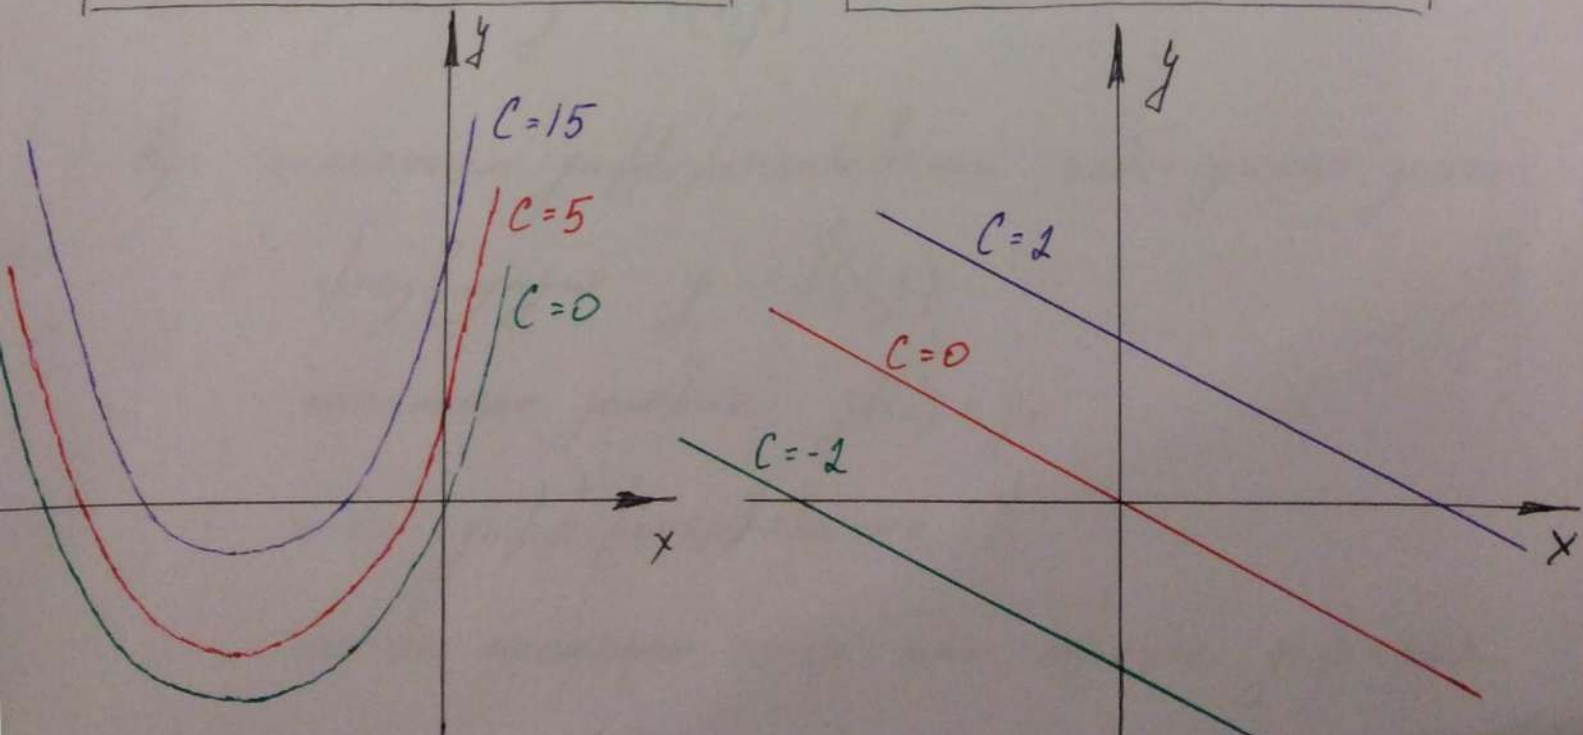 y
C=15
C=5
C=0
x
y
C=2
C=0
C=-2
x